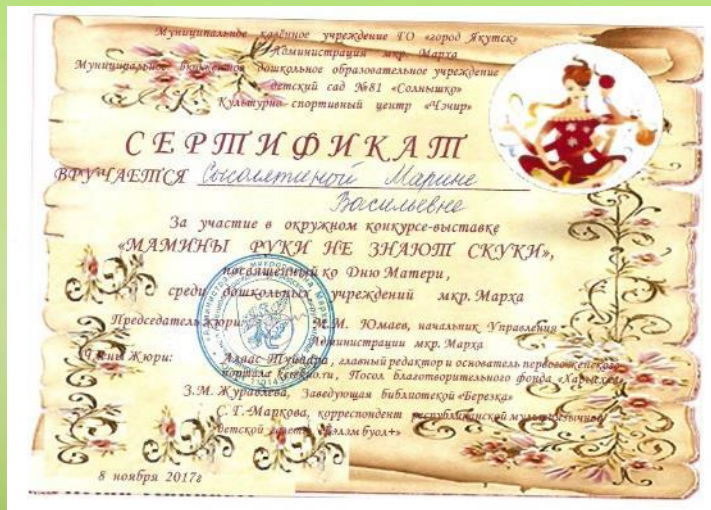 Муниципальное казённое учреждение ГО «город Якутск»
Администрация мкр. Марха
Муниципальное бюджетное дошкольное образовательное учреждение
детский сад №81 «Солнышко»
Культурно-спортивный центр «Чэчир»
СЕРТИФИКАТ
ВРУЧАЕТСЯ Марине
Васильевне
За участие в окружном конкурсе-выставке
«МАМИНЫ РУКИ НЕ ЗНАЮТ СКУКИ»,
посвященный ко Дню Матери,
среди дошкольных учреждений мкр. Марха
Председатель жюри: М.М. Юмаев, начальник Управления
Администрации мкр. Марха
Члены Жюри: главный редактор и основатель первого женского
портала Посол Благотворительного фонда
З.М. Журавлева, Заведующая библиотекой «Березка»
С.Г. Маркова, корреспондент республиканской
детской газеты
8 ноября 2017г